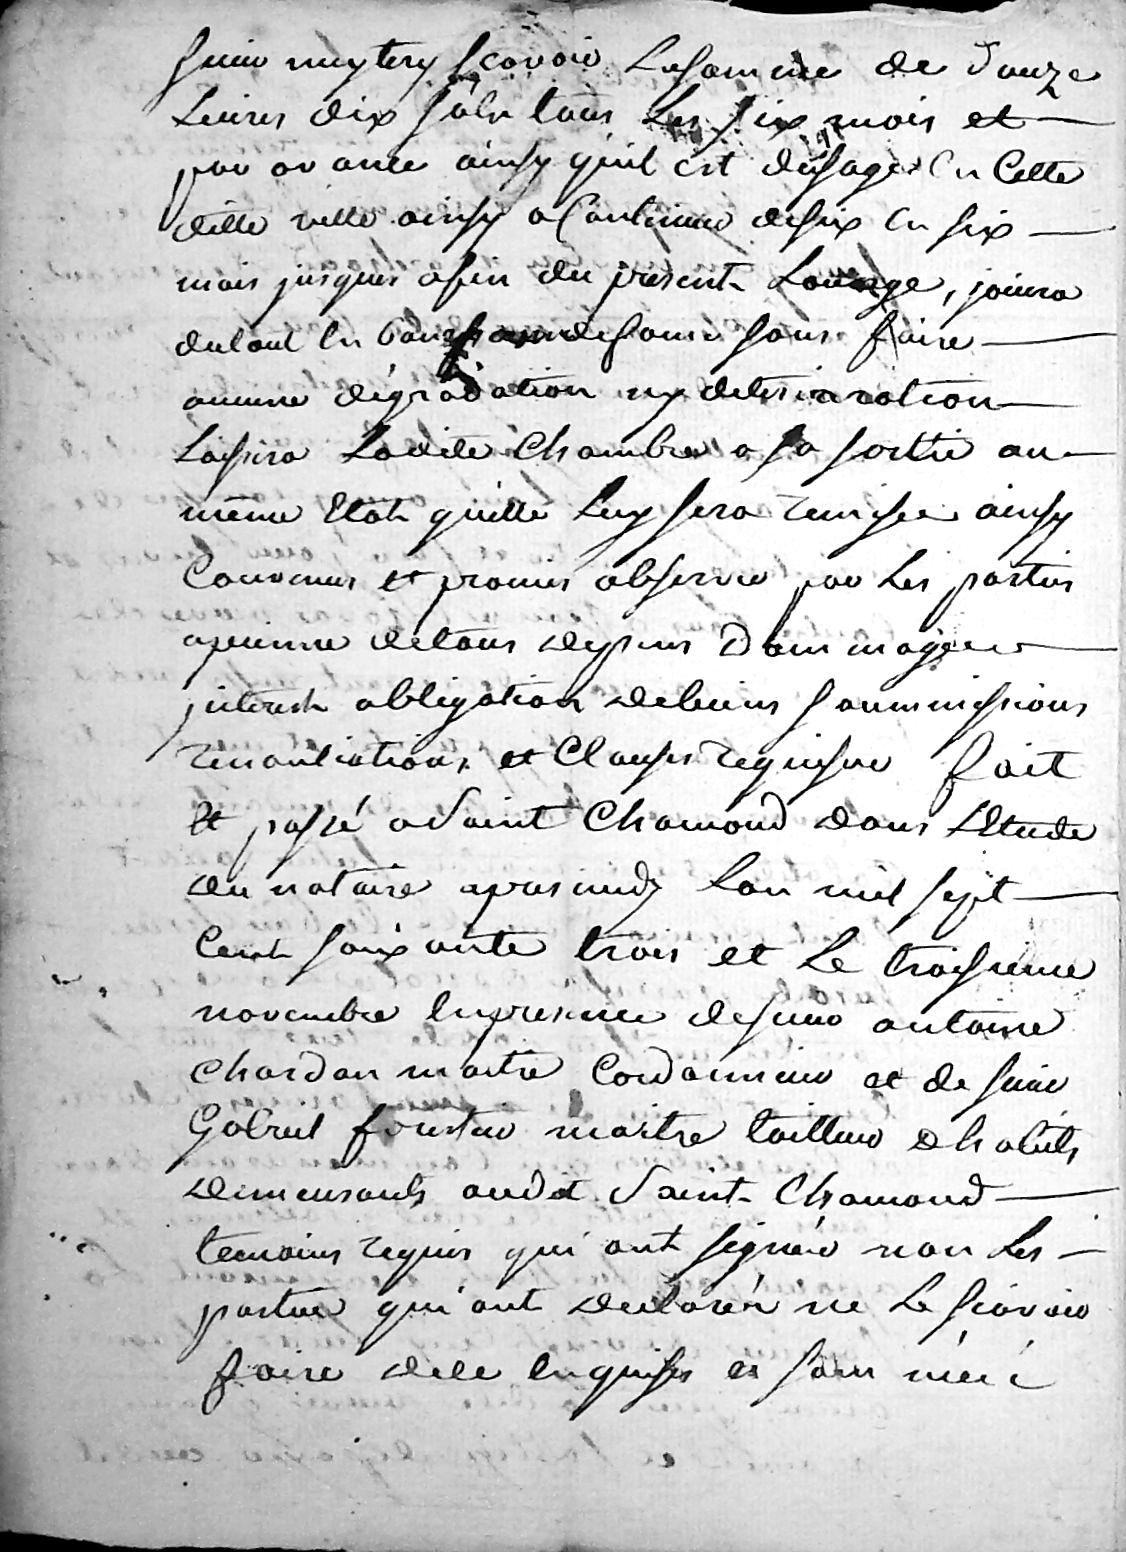 sieur meytery scavoir La somme de douze
Livres dix sols tous Les six mois et
par avance ainsy quil est dusage En Cette
ditte ville ainsy a Continuer de six En six
mois jusques a fin du present Louage, jouira
dutout En bon de famil sans faire
aucune dégradation ny deterioration
Laissera Ladite Chambre a sa sortie au
même Etat quelle Luy sera remise ainsy
Convenus et promis observer par Les parties
a peinne de tous depens Dommages
interest obligation de biens soummissions
renontiations et Clauses requises fait
Et passé a Saint Chamond dans L'Etude
du notaire apres midy Lan mil sept
Cent soixante trois et Le troisieme
novembre En presence de sieur antoine
chardon maitre Cordonnier et de sieur
Gabriel maitre tailleur dhabits
demeurants audit Saint Chamond
temoins requis qui ont signéz non Les
parties qui ont declaréz ne Le scavoir
faire de ce Enquises et